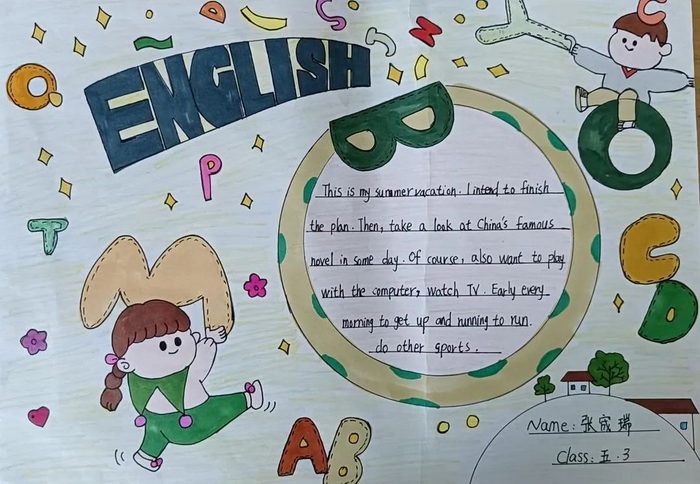 ENGLISH
B
This is my summer vacation. I intend to finish
the plan. Then, take a look at China's famous
novel in some day. Of course, also want to play
with the computer, watch TV. Early every
morning to get up and running to run.
do other sports.
Name: 张成瑞
Class: 五.3
S
C
Z
Y
C
O
Q
P
T
M
C
D
A B